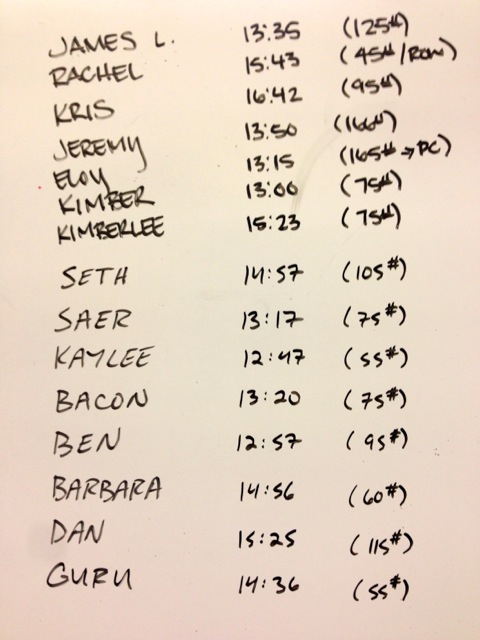 JAMES L. 13:35 (125#)
RACHEL 15:43 (45#/ROW)
KRIS 16:42 (95#)
JEREMY 13:50 (166#)
ELOY 13:15 (165#→PC)
KIMBER 13:00 (75#)
KIMBERLEE 15:23 (75#)
SETH 14:57 (105#)
SAER 13:17 (75#)
KAYLEE 12:47 (55#)
BACON 13:20 (75#)
BEN 12:57 (95#)
BARBARA 14:56 (60#)
DAN 15:25 (115#)
GURU 14:36 (55#)